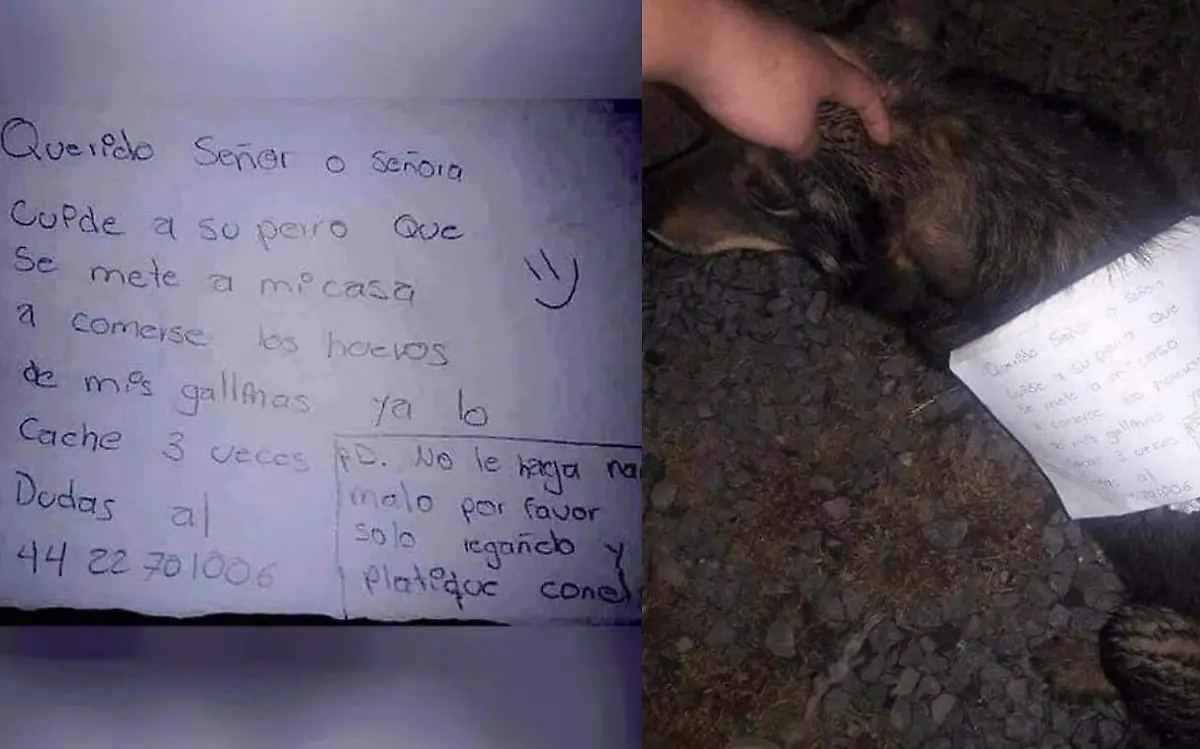 Querido Señor o señora
Cuide a su perro Que
Se mete a mi casa
a comerse los huevos
de mis gallinas ya lo
Cache 3 veces
Dudas al
44 22 701006
PD. No le haga na
malo por favor
solo regañelo y
platique conel
Querido Señor o señora
Cuide a su perro Que
Se mete a mi casa
a comerse los huevos
de mis gallinas
al
701006